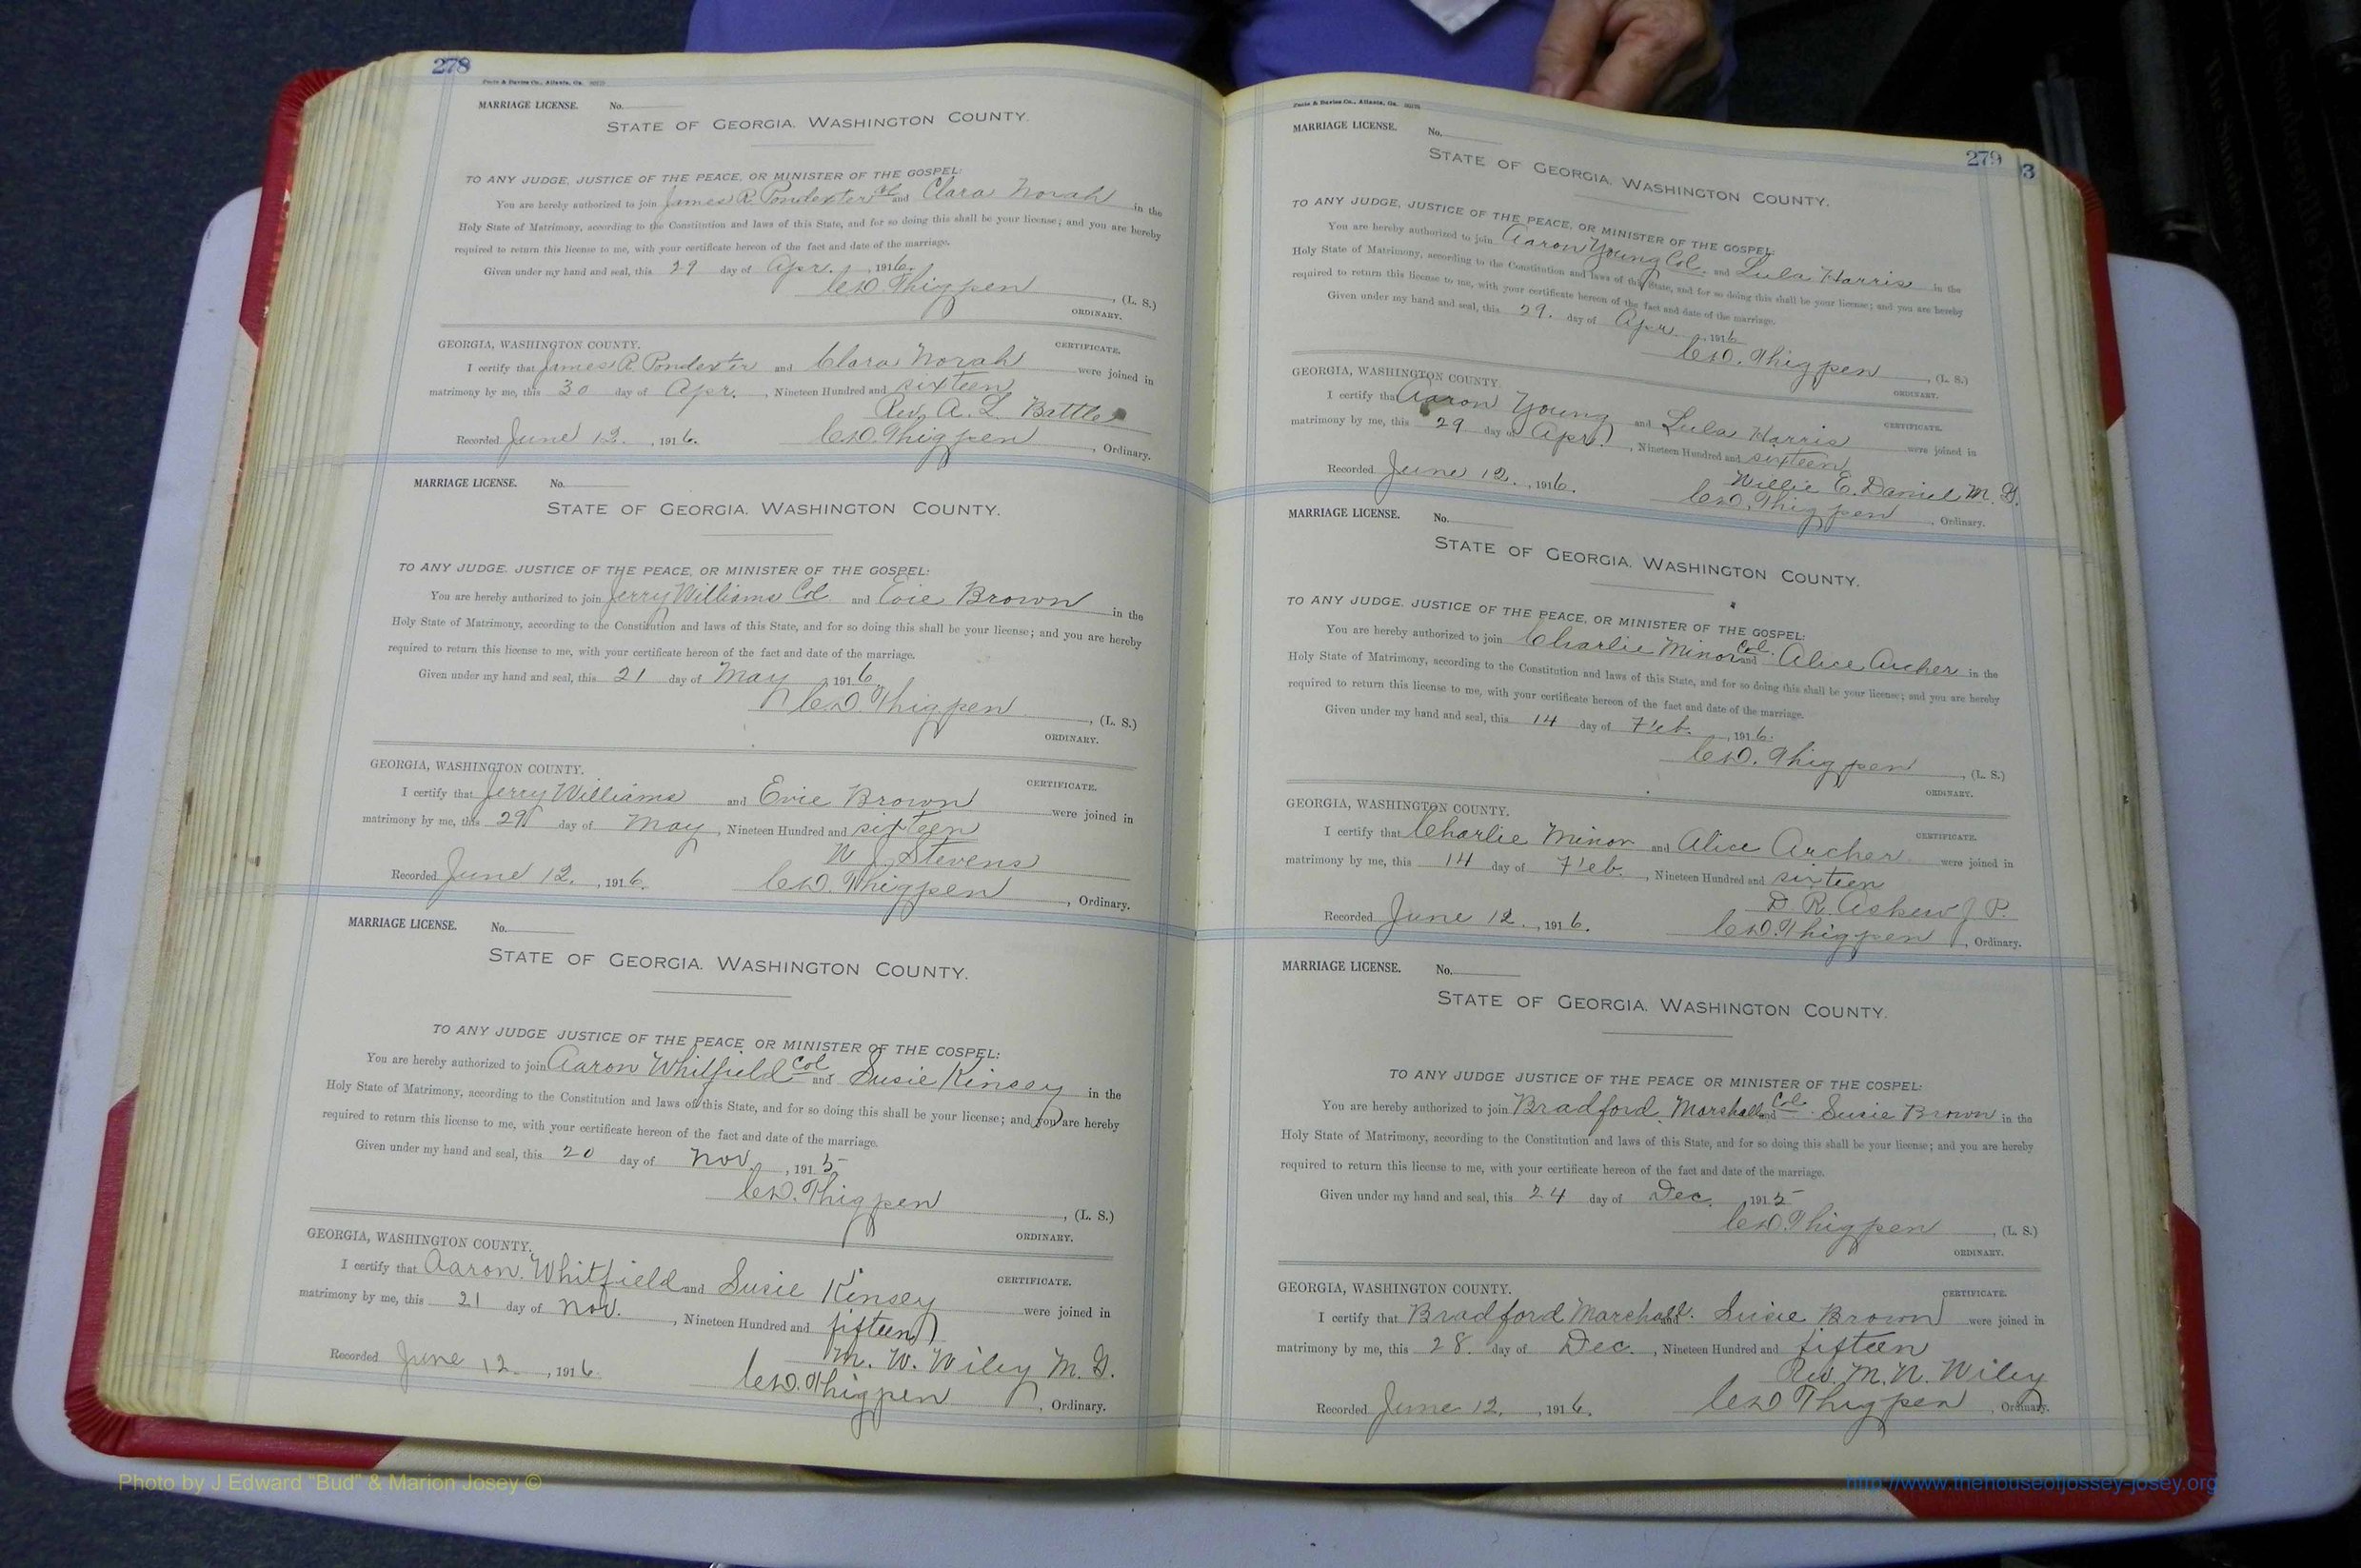 278
MARRIAGE LICENSE. No.
STATE OF GEORGIA. WASHINGTON COUNTY.
TO ANY JUDGE, JUSTICE OF THE PEACE, OR MINISTER OF THE GOSPEL:
You are hereby authorized to join James R. Pondexter Col and Clara Norah in the
Holy State of Matrimony, according to the Constitution and laws of this State, and for so doing this shall be your license; and you are hereby
required to return this license to me, with your certificate hereon of the fact and date of the marriage.
Given under my hand and seal, this 29 day of Apr. , 1916.
C.D. Thigpen , (L. S.)
ORDINARY.
GEORGIA, WASHINGTON COUNTY. CERTIFICATE.
I certify that James R. Pondexter and Clara Norah were joined in
matrimony by me, this 30 day of Apr. , Nineteen Hundred and sixteen
Rev. A. L. Battle
Recorded June 12. , 1916. C.D. Thigpen , Ordinary.
MARRIAGE LICENSE. No.
STATE OF GEORGIA. WASHINGTON COUNTY.
TO ANY JUDGE, JUSTICE OF THE PEACE, OR MINISTER OF THE GOSPEL:
You are hereby authorized to join Jerry Williams Col and Evie Brown in the
Holy State of Matrimony, according to the Constitution and laws of this State, and for so doing this shall be your license; and you are hereby
required to return this license to me, with your certificate hereon of the fact and date of the marriage.
Given under my hand and seal, this 21 day of May , 1916
C.D. Thigpen , (L. S.)
ORDINARY.
GEORGIA, WASHINGTON COUNTY. CERTIFICATE.
I certify that Jerry Williams and Evie Brown were joined in
matrimony by me, this day of May , Nineteen Hundred and sixteen
W. J. Stevens
Recorded June 12. , 1916. C.D. Thigpen , Ordinary.
MARRIAGE LICENSE. No.
STATE OF GEORGIA. WASHINGTON COUNTY.
TO ANY JUDGE JUSTICE OF THE PEACE OR MINISTER OF THE GOSPEL:
You are hereby authorized to join Aaron Whitfield Col and Susie Kinsey in the
Holy State of Matrimony, according to the Constitution and laws of this State, and for so doing this shall be your license; and you are hereby
required to return this license to me, with your certificate hereon of the fact and date of the marriage.
Given under my hand and seal, this 20 day of Nov. , 1915
C.D. Thigpen , (L. S.)
ORDINARY.
GEORGIA, WASHINGTON COUNTY. CERTIFICATE.
I certify that Aaron Whitfield and Susie Kinsey were joined in
matrimony by me, this 21 day of Nov. , Nineteen Hundred and fifteen
M. W. Wiley M. G.
Recorded June 12. , 1916 C.D. Thigpen , Ordinary.
279
MARRIAGE LICENSE. No.
STATE OF GEORGIA. WASHINGTON COUNTY.
TO ANY JUDGE, JUSTICE OF THE PEACE, OR MINISTER OF THE GOSPEL:
You are hereby authorized to join Aaron Young Col. and Lula Harris in the
Holy State of Matrimony, according to the Constitution and laws of this State, and for so doing this shall be your license; and you are hereby
required to return this license to me, with your certificate hereon of the fact and date of the marriage.
Given under my hand and seal, this 29. day of Apr , 1916
C.D. Thigpen , (L. S.)
ORDINARY.
GEORGIA, WASHINGTON COUNTY. CERTIFICATE.
I certify that Aaron Young and Lula Harris were joined in
matrimony by me, this 29 day of Apr. , Nineteen Hundred and sixteen
Willie E. Daniel M. G.
Recorded June 12. , 1916. C.D. Thigpen , Ordinary.
MARRIAGE LICENSE. No.
STATE OF GEORGIA. WASHINGTON COUNTY.
TO ANY JUDGE, JUSTICE OF THE PEACE, OR MINISTER OF THE GOSPEL:
You are hereby authorized to join Charlie Minor Col. and Alice Archer in the
Holy State of Matrimony, according to the Constitution and laws of this State, and for so doing this shall be your license; and you are hereby
required to return this license to me, with your certificate hereon of the fact and date of the marriage.
Given under my hand and seal, this 14 day of Feb. , 1916.
C.D. Thigpen , (L. S.)
ORDINARY.
GEORGIA, WASHINGTON COUNTY. CERTIFICATE.
I certify that Charlie Minor and Alice Archer were joined in
matrimony by me, this 14 day of Feb. , Nineteen Hundred and sixteen
D. R. Askew J. P.
Recorded June 12. , 1916. C.D. Thigpen , Ordinary.
MARRIAGE LICENSE. No.
STATE OF GEORGIA. WASHINGTON COUNTY.
TO ANY JUDGE JUSTICE OF THE PEACE OR MINISTER OF THE GOSPEL:
You are hereby authorized to join Bradford Marshall and Col. Susie Brown in the
Holy State of Matrimony, according to the Constitution and laws of this State, and for so doing this shall be your license; and you are hereby
required to return this license to me, with your certificate hereon of the fact and date of the marriage.
Given under my hand and seal, this 24 day of Dec. , 1915
C.D. Thigpen , (L. S.)
ORDINARY.
GEORGIA, WASHINGTON COUNTY. CERTIFICATE.
I certify that Bradford Marshall and Susie Brown were joined in
matrimony by me, this 28. day of Dec. , Nineteen Hundred and fifteen
Rev. M. W. Wiley
Recorded June 12. , 1916. C.D. Thigpen , Ordinary.
Photo by J Edward "Bud" & Marion Josey ©
http://www.thehouseofjossey-josey.org